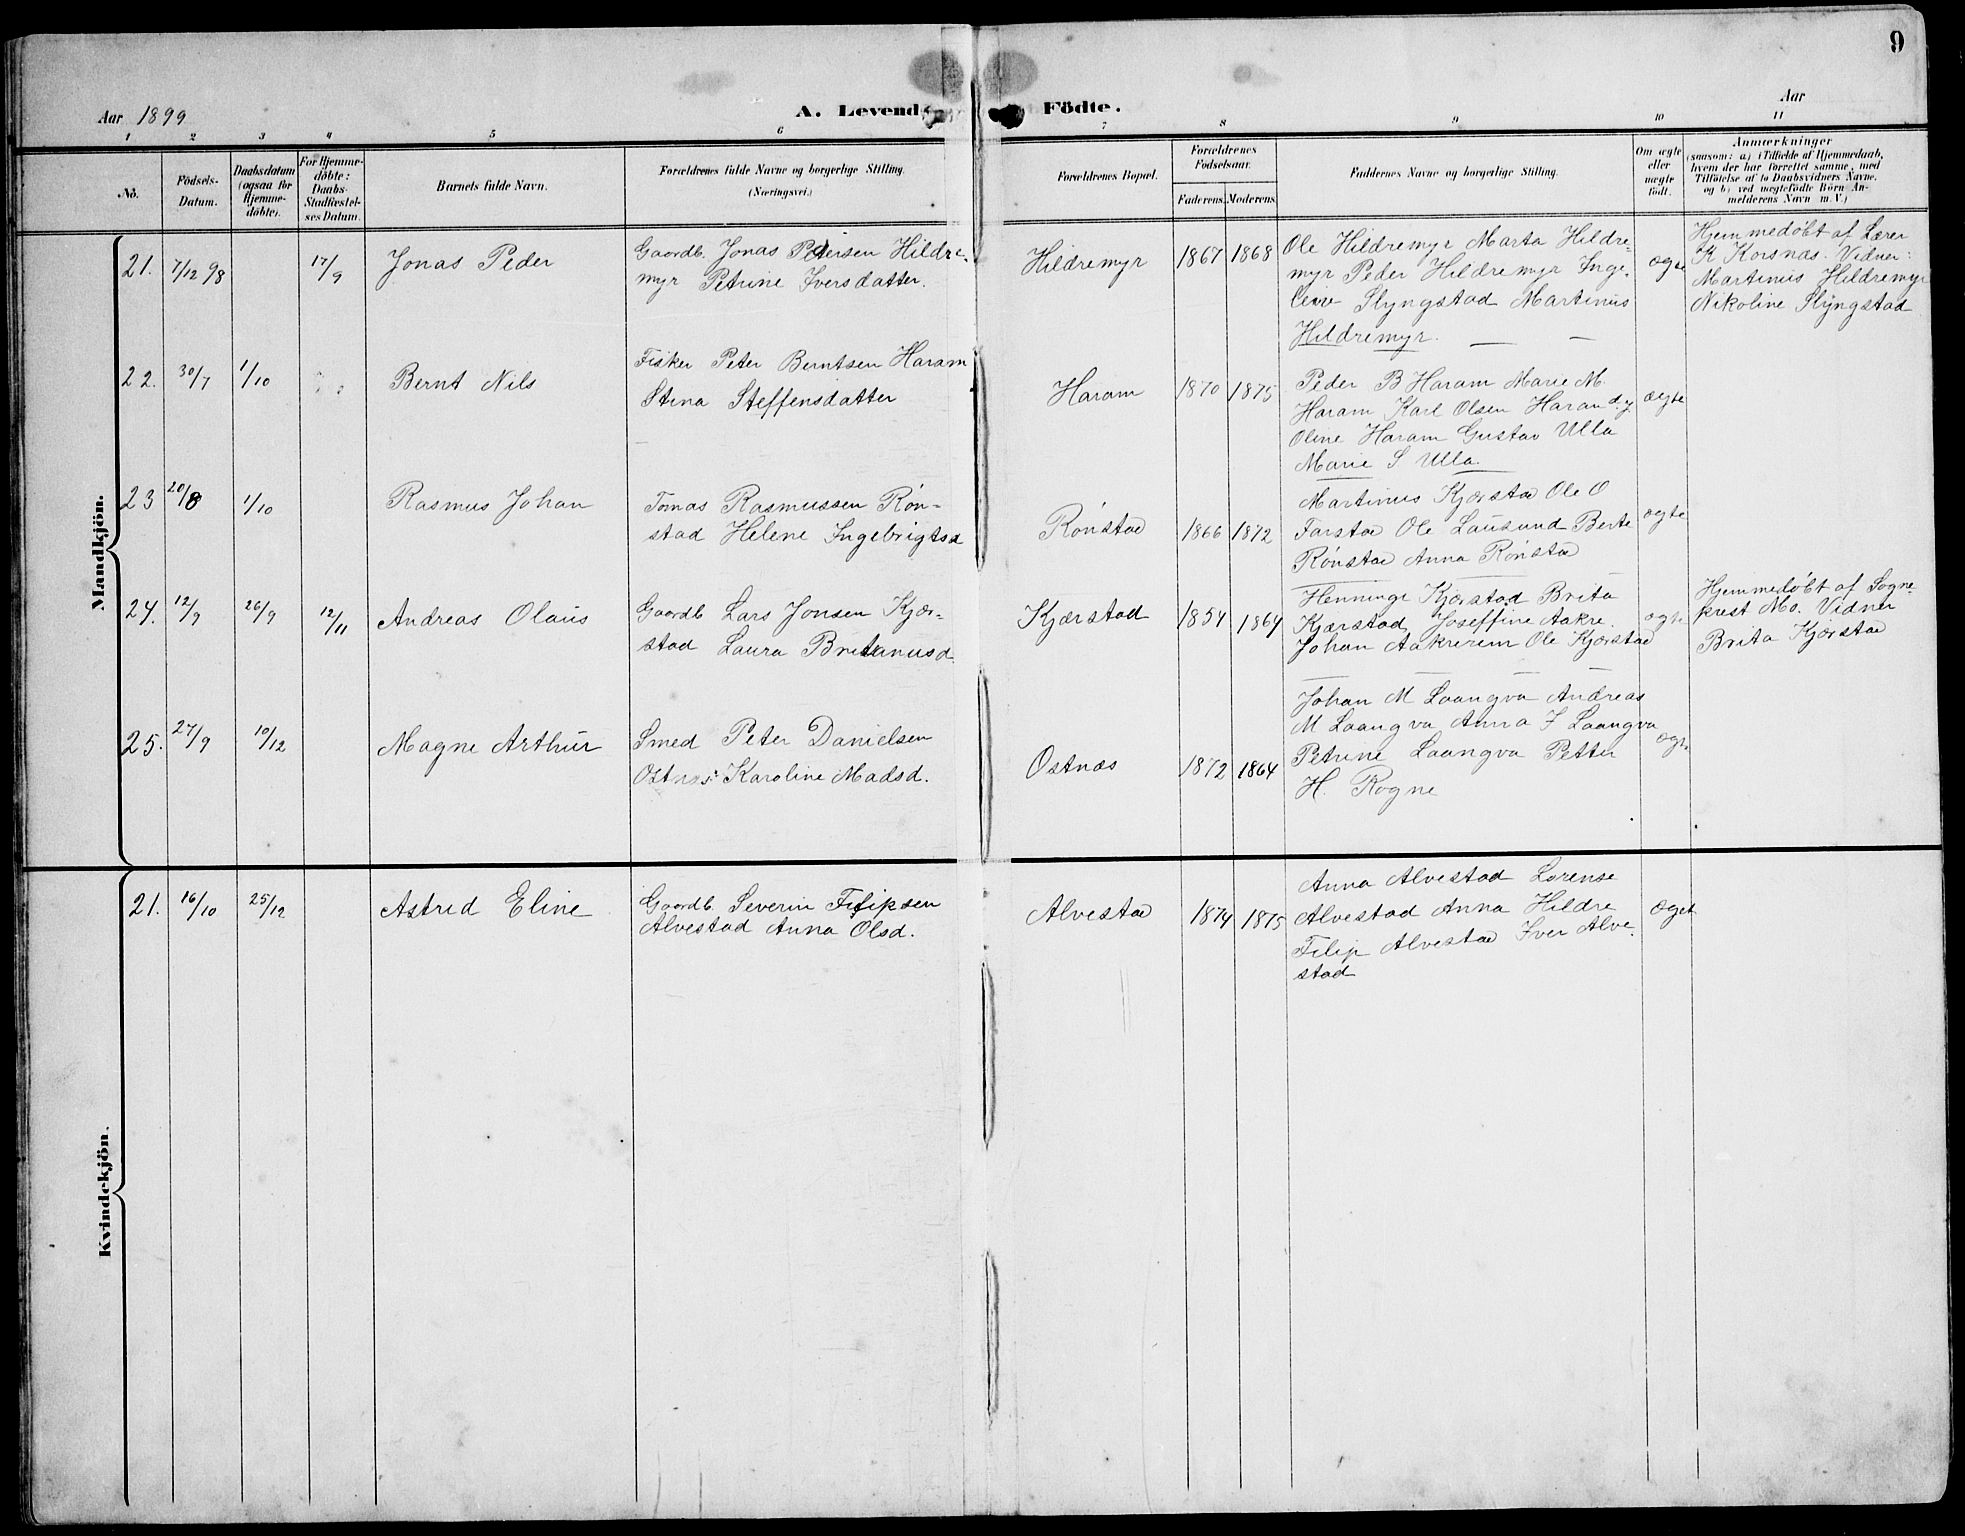 9
Aar 1899
A. Levend
Födte.
Aar
1 2 3 4 5 6 7 8 9 10 11
No.
Födsels-
Datum.
Daabsdatum
(ogsaa for
Hjemme-
döbte).
For Hjemme-
döbte:
Daabs-
Stadfæstel-
ses Datum.
Barnets fulde Navn.
Forældrenes fulde Navne og borgerlige Stilling.
(Næringsvei.)
Forældrenes Bopæl.
Forældrenes
Födselsaar.
Faderens. Moderens.
Faddernes Navne og borgerlige Stilling.
Om ægte
eller
uægte
födt.
Anmærkninger
(saasom: a) i Tilfælde af Hjemmedaab,
hvem der har forrettet samme, med
Tilföielse af to Daabsvidners Navne.
og b) ved uægtefödte Börn An-
melderens Navn m. V.)
Mandkjön.
21. 7/12 98 17/9 Jonas Peder
Gaardb. Jonas Petersen Hildre-
myr Petrine Iversdatter.
Hildremyr 1867 1868
Ole Hildremyr Marta Hildre-
myr Peder Hildremyr Inge-
leive Slyngstad Martinus
Hildremyr.
ægte
Hjemmedøbt af Lærer
K Korsnæs. Vidner:
Martinus Hildremyr
Nikoline Slyngstad
22. 30/7 1/10 Bernt Nils
Fisker Peter Berntsen Haram
Stina Steffensdatter
Haram 1870 1875
Peder B Haram Marie M.
Haram Karl Olsen Haram d.y
Oline Haram Gustav Ulla
Marie S Ulla.
ægte
23 20/8 1/10 Rasmus Johan
Tomas Rasmussen Røn-
stad Helene Ingebrigtsd
Rønstad 1866 1872
Martinus Kjærstad Ole O
Farstad Ole Lausund Berte
Rønstad Anna Rønstad
ægte
24. 12/9 26/9 12/11 Andreas Olaus
Gaardb Lars Jonsen Kjær-
stad Laura Britanusd.
Kjærstad 1854 1864
Henninge Kjærstad Brita
Kjærstad, Joseffine Aakre.
Johan Aakrerem Ole Kjærstad
ægte
Hjemmedøbt af Sogne-
prest Mo. Vidner
Brita Kjærstad
25. 27/9 10/12 Magne Arthur
Smed Peter Danielsen
Ostnæs: Karoline Madsd.
Ostnæs 1872 1864
Johan M Laangva Andreas
M Laangva Anna J Laangva
Petrine Laangva Petter
H. Rogne
ægte
Kvindekjön.
21. 16/10 25/12 Astrid Eline
Gaardb. Severin Filipsen
Alvestad Anna Olsd.
Alvestad 1874 1875
Anna Alvestad Lorense
Alvestad Anna Hildre
Filip Alvestad Iver Alve-
stad
Æget